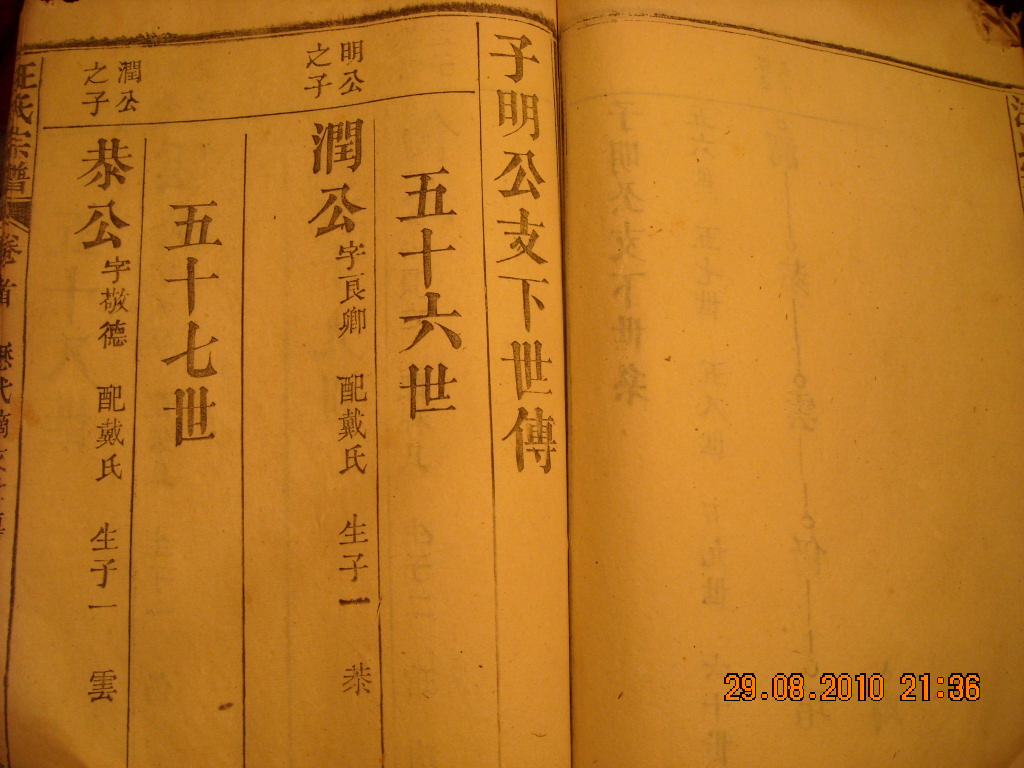 子明公支下世傳
五十六世
明公之子
潤公 字良卿 配戴氏 生子一 恭
五十七世
潤公之子
恭公 字敬德 配戴氏 生子一 雲
汪氏宗譜 卷首
29.08.2010 21:36